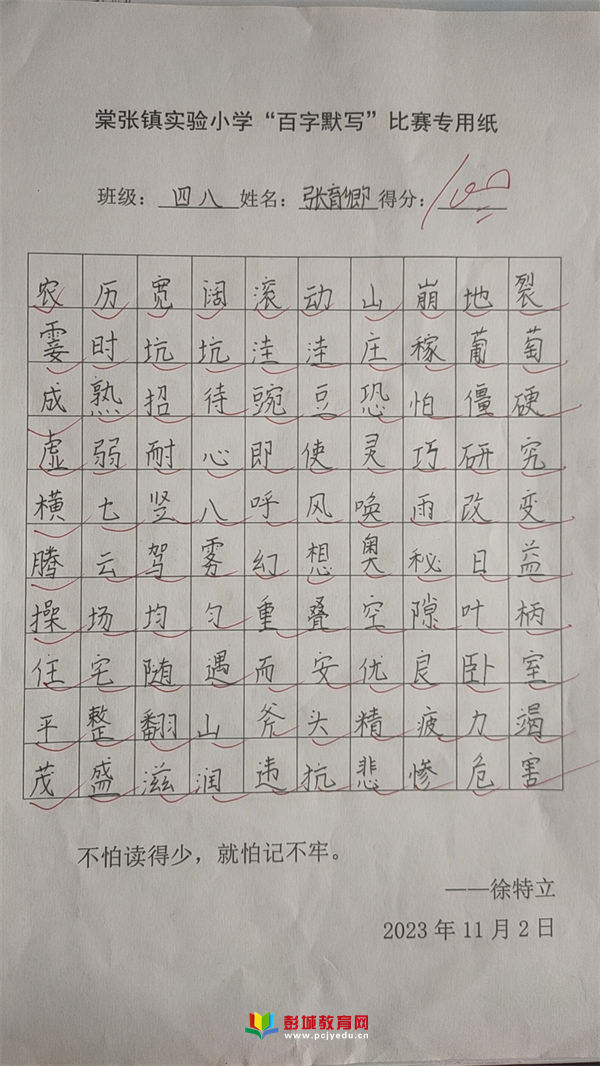 棠张镇实验小学“百字默写”比赛专用纸
班级：四八姓名：张育卿得分：100
农历宽阔滚动山崩地裂
霎时坑坑洼洼庄稼葡萄
成熟招待豌豆恐怕僵硬
虚弱耐心即使灵巧研究
横七竖八呼风唤雨改变
腾云驾雾幻想奥秘日益
操场均匀重叠空隙叶柄
住宅随遇而安优良卧室
平整翻山斧头精疲力竭
茂盛滋润违抗悲惨危害
不怕读得少，就怕记不牢。
——徐特立
2023年11月2日
彭城教育网
www.pcjyedu.cn